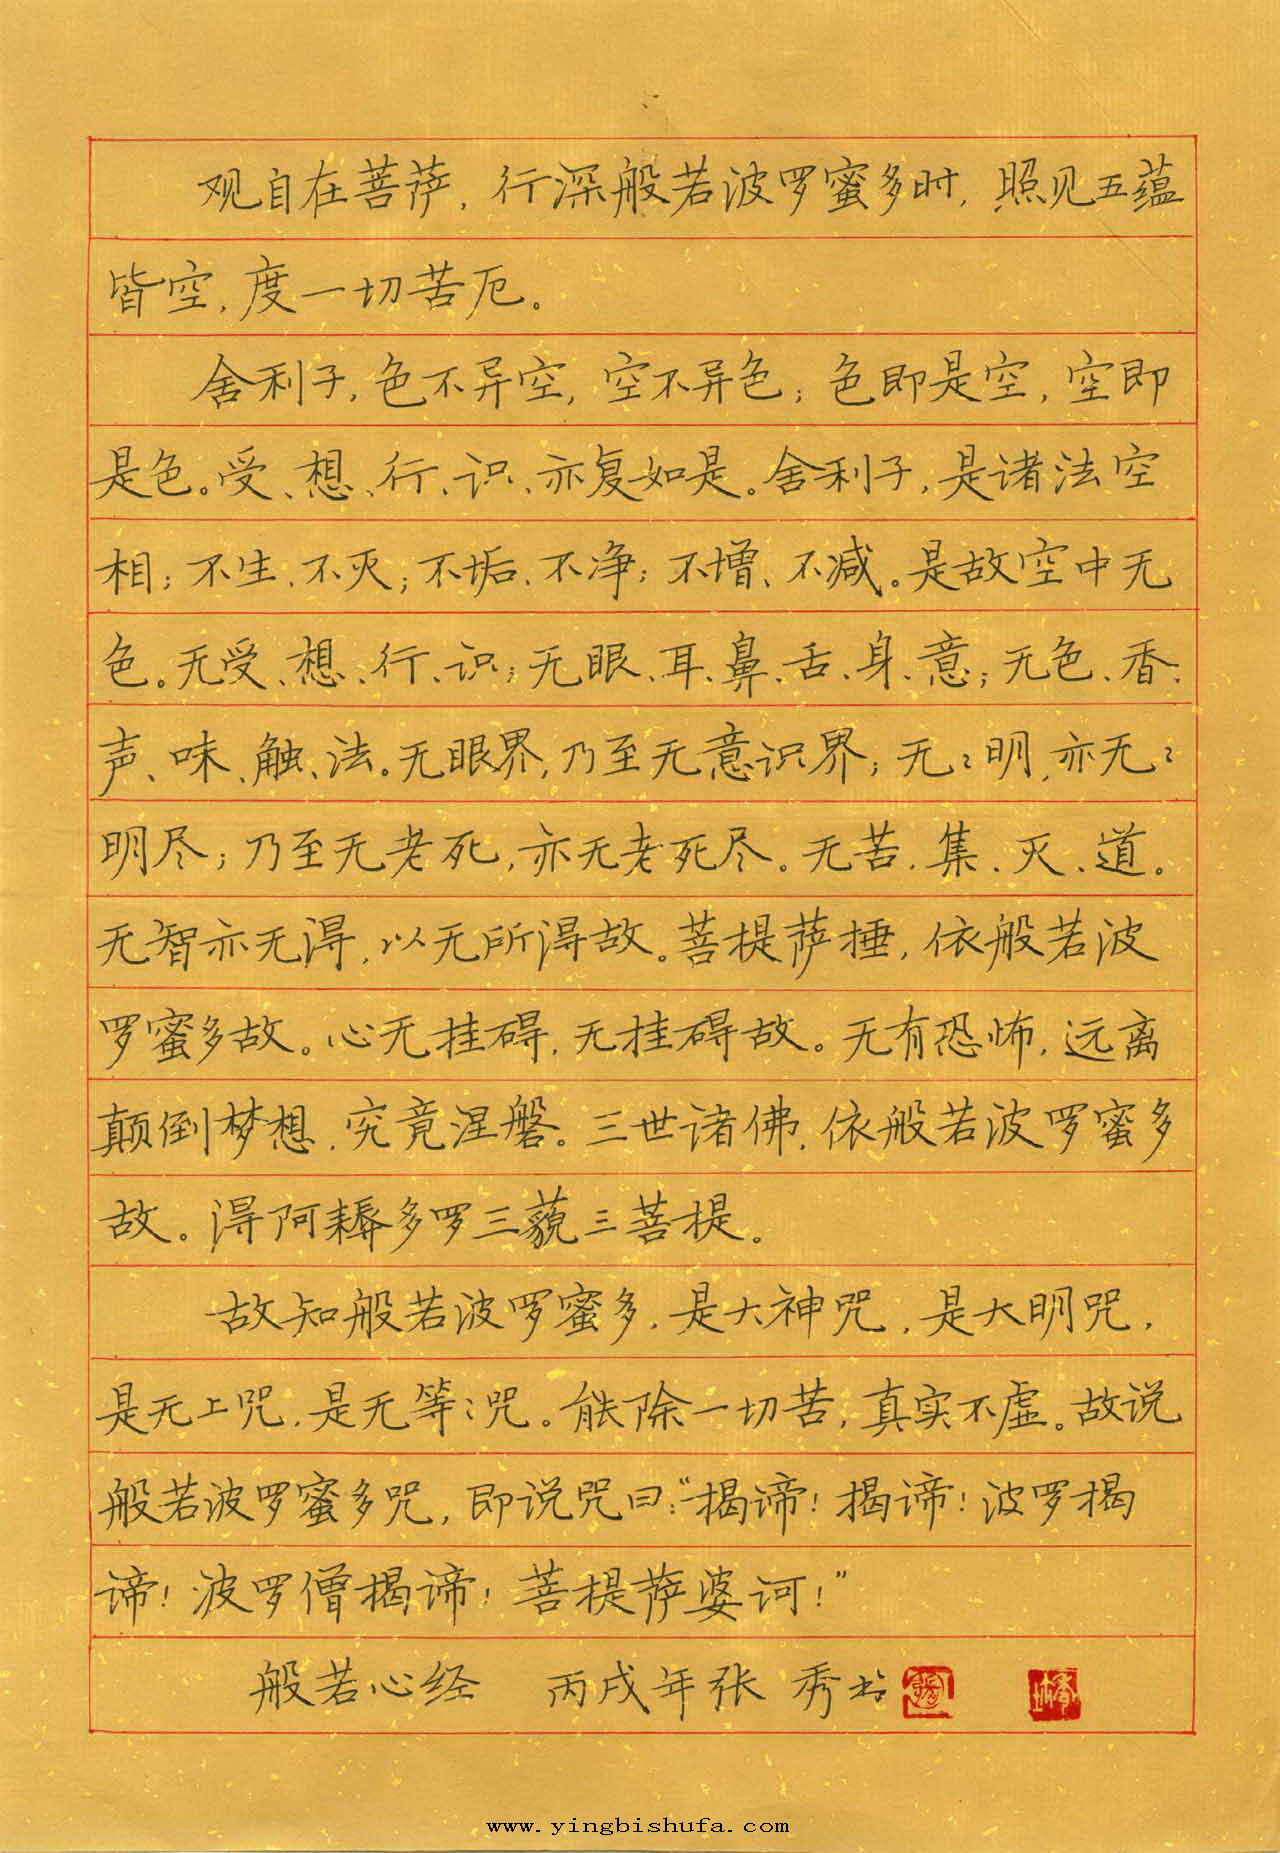 观自在菩萨，行深般若波罗蜜多时，照见五蕴
皆空，度一切苦厄。
舍利子，色不异空，空不异色；色即是空，空即
是色。受、想、行、识、亦复如是。舍利子，是诸法空
相；不生、不灭；不垢、不净；不增、不减。是故空中无
色。无受、想、行、识；无眼、耳、鼻、舌、身、意；无色、香、
声、味、触、法。无眼界，乃至无意识界；无〻明，亦无〻
明尽；乃至无老死，亦无老死尽。无苦、集、灭、道。
无智亦无得，以无所得故。菩提萨捶，依般若波
罗蜜多故。心无挂碍，无挂碍故。无有恐怖，远离
颠倒梦想，究竟涅磐。三世诸佛，依般若波罗蜜多
故。得阿耨多罗三藐三菩提。
故知般若波罗蜜多，是大神咒，是大明咒，
是无上咒，是无等〻咒。能除一切苦，真实不虚。故说
般若波罗蜜多咒，即说咒曰：“揭谛！揭谛！波罗揭
谛！波罗僧揭谛！菩提萨婆诃！”
般若心经 丙戌年张秀书
www.yingbishufa.com